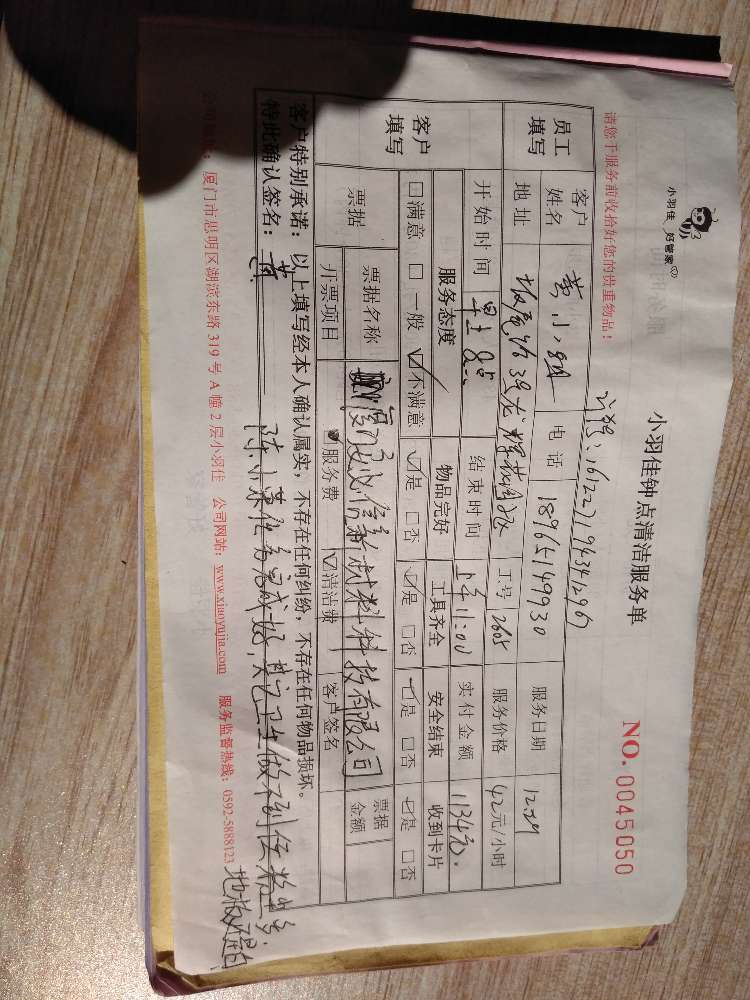 小羽佳 好管家
小羽佳钟点清洁服务单
NO. 0045050
请您于服务前收拾好您的贵重物品!
161221194341296
员工填写 客户姓名 黄小姐 电话 18965149930 服务日期
地址 工号 2605 服务价格 42元/小时
开始时间 早上8点 结束时间 上午11:00 实付金额 1134元.
客户填写 服务态度 物品完好 工具齐全 安全结束 收到卡片
□满意 □一般 ☑不满意 ☑是 □否 ☑是 □否 ☑是 □否 ☑是 □否
票据 票据名称 厦门 信新材料科技有限公司 票据金额
开票项目 ☑服务费 ☑清洁费 客户签名
客户特别承诺:以上填写经本人确认属实,不存在任何纠纷,不存在任何物品损坏。
特此确认签名:黄
地板还是的
厦门市思明区湖滨东路 319 号 A 幢 2 层小羽佳 公司网站:www.xiaoyujia.com 服务监督热线:0592-5888123